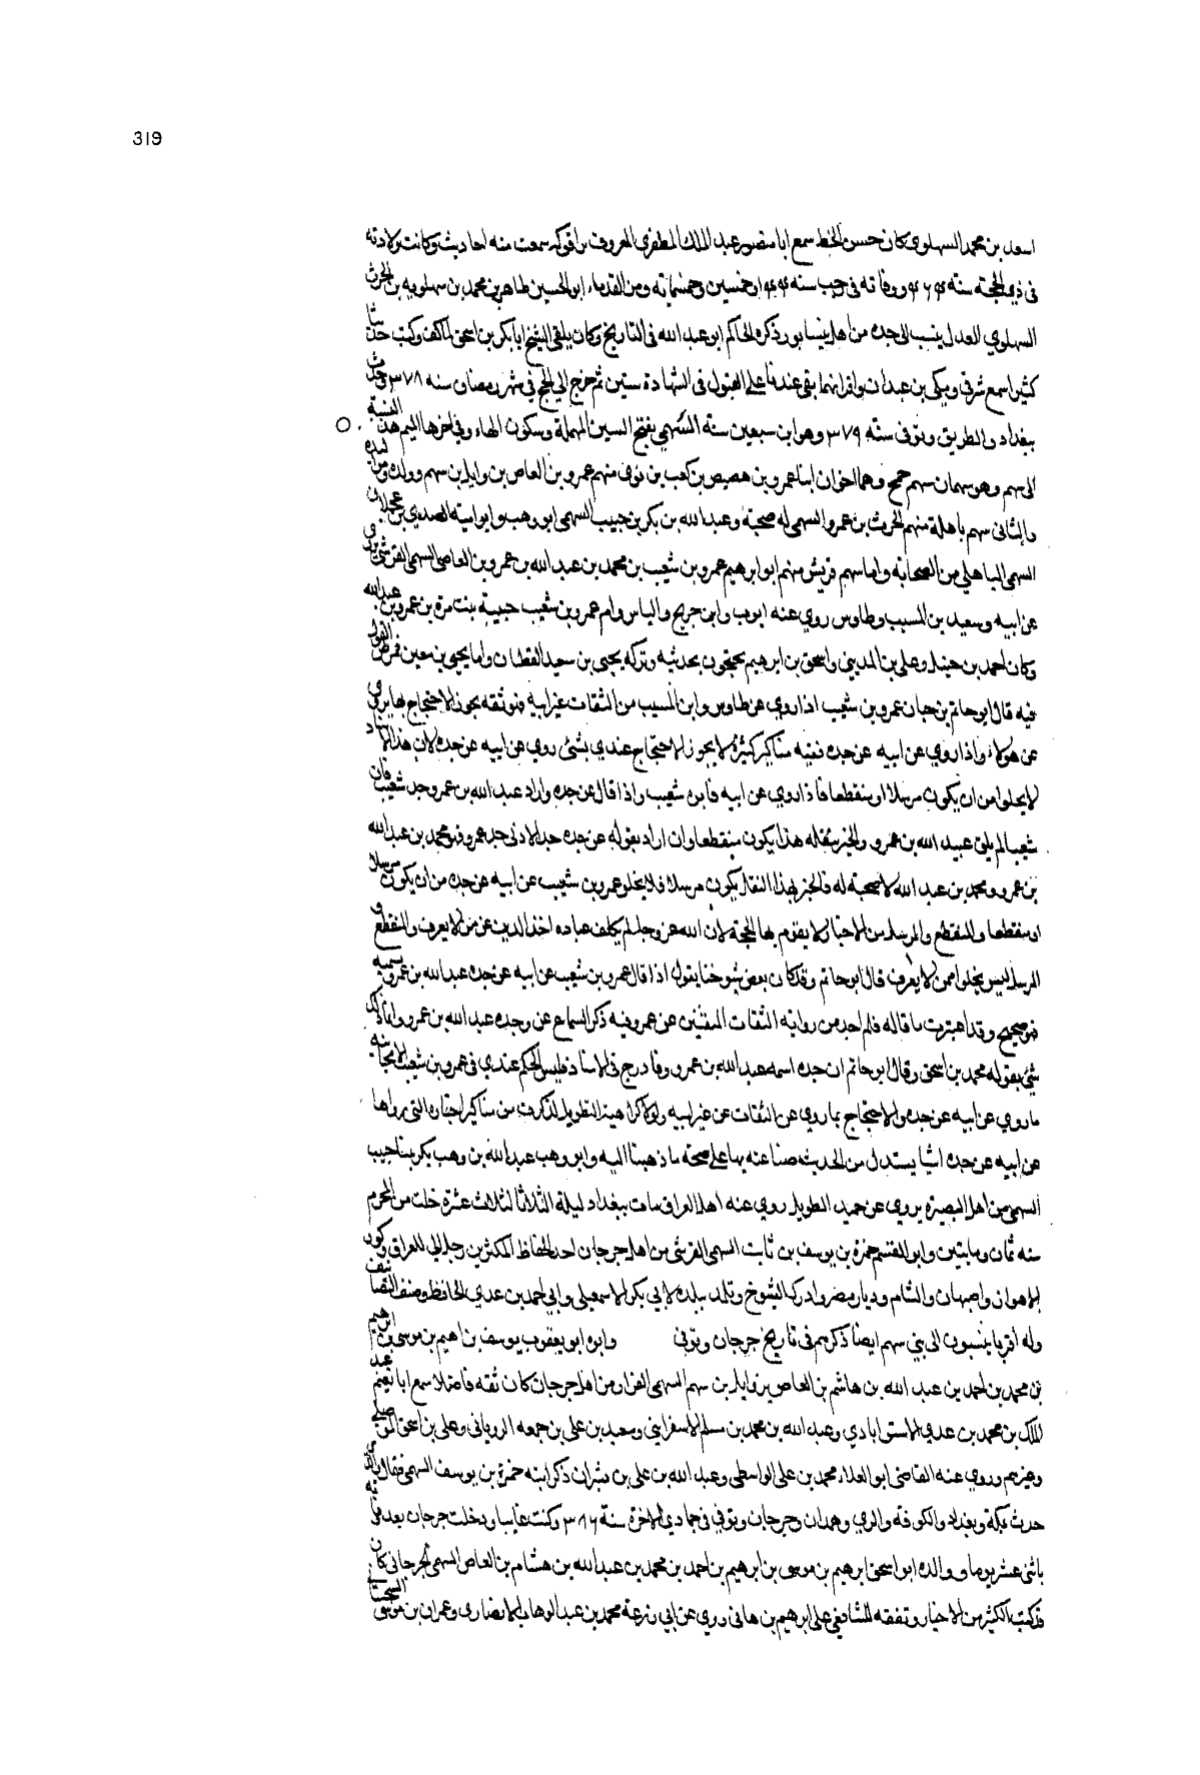 319
اسعد بن محمد السهلوي كان حسن الخط سمع ابا منصور عبد الملك المظفري المعروف سمعت منه احاديث وكانت ولادته
في ذي الحجة سنه ووفاته في رجب سنه وخمسين وخمسمائه ومن القدماء ابو الحسين طاهر بن محمد بن سهلويه بن الحرث
السهلوي العدل ينسب الى جده من اهل نيسابور ذكره الحاكم ابو عبد الله في التاريخ وكان يلقى الشيخ ابا بكر بن اسحق وكتب حدثنا
كثيرا سمع شرقي ومكي بن عبدان واقرانهما بقى عندنا على القبول في الشهادة سنين ثم خرج الى الحج في شهر رمضان سنه ٣٧٨ وحدث
ببغداد والطريق وتوفى سنة ٣٧٩ وهو ابن سبعين سنة السهمي بفتح السين المهملة وسكون الهاء وفي اخرها الميم هذه النسبة
الى سهم وهو سهمان سهم جمح وهما اخوان ابنا عمرو بن هصيص بن كعب بن لوى منهم عمرو بن العاص بن وايل بن سهم وولده
والثاني سهم باهلة منهم الحرث بن عمرو السهمي له صحبة وعبد الله بن بكر بن حبيب السهمي ابو وهب وابو امامة الصدي بن عجلان
السهمي الباهلي من الصحابه واما سهم قريش منهم ابو ابرهيم عمرو بن شعيب بن محمد بن عبد الله بن عمرو بن العاص السهمي القرشي يروى
عن ابيه وسعيد بن المسيب وطاوس روى عنه ايوب وابن جريج والناس وام عمرو بن شعيب حبيبة بنت مرة بن عمرو بن عبد الله
وكان احمد بن حنبل وعلي بن المديني واسحق بن ابرهيم يحتجون بحديثه وتركه يحيى بن سعيد القطان واما يحيى بن معين فمرض القول
فيه قال ابو حاتم بن حبان عمرو بن شعيب اذا روى عن طاوس وابن المسيب من الثقات غير ابيه فهو ثقه يجوز الاحتجاج بما يروى
عن هولاء واذا روى عن ابيه عن جده ففيه مناكير كثيرة لا يجوز الاحتجاج عندي بشئ روى عن ابيه عن جده لان هذا الاسناد
لا يخلوا من ان يكون مرسلا او منقطعا فاذا روى عن ابيه فابوه شعيب واذا قال عن جده واراد عبد الله بن عمرو جد شعيب فان
شعيبا لم يلق عبد الله بن عمرو والخبر بنقله هذا يكون منقطعا وان اراد بقوله عن جده جده الادنى جد عمرو فهو محمد بن عبد الله
بن عمرو ومحمد بن عبد الله لا صحبة له فالخبر بهذا النقل يكون مرسلا فلا يخلو عمرو بن شعيب عن ابيه عن جده من ان يكون مرسلا
او منقطعا والمنقطع والمرسل من الاخبار لا يقوم بها الحجة لان الله عز وجل لم يكلف عباده اخذ الدين عن من لا يعرف والمنقطع و
المرسل ليس يخلوا ممن لا يعرف قال ابو حاتم وقد كان بعض شيوخنا يقول اذا قال عمرو بن شعيب عن ابيه عن جده عبد الله بن عمرو يسميه
فهو صحيح وقد اعتبرت ما قاله فلم اجد من رواية الثقات المتقنين عن عمرو فيه ذكر السماع عن جده عبد الله بن عمرو وانما ذلك
شئ يقوله محمد بن اسحق وقال ابو حاتم ان جده اسمه عبد الله بن عمرو فادرج في الاسناد فليس الحكم عندي في عمرو بن شعيب الا مجانبة
ما روى عن ابيه عن جده والاحتجاج بما روى عن الثقات عن غير ابيه ولولا كراهية التطويل لذكرت من مناكير اخباره التي رواها
عن ابيه عن جده اشيا يستدل من الحديث صناعته بها على صحة ما ذهبنا اليه وابو وهب عبد الله بن وهب بكر بن حبيب
السهمي من اهل البصرة يروى عن حميد الطويل روى عنه اهل العراق مات ببغداد ليلة الثلاثا لثلاث عشرة خلت من المحرم
سنه ثمان ومايتين وابو القسم حمزة بن يوسف بن ثابت السهمي القرشي من اهل جرجان احد الحفاظ المكثرين رحل الى العراق وكور
الاهواز واصبهان والشام وديار مصر وادرك الشيوخ وتلمذ ببلده لابي بكر الاسمعيلي وابي احمد بن عدي الحافظ وصنف التصانيف
وله اقربا ينسبون الى بني سهم ايضا ذكرهم في تاريخ جرجان وتوفى وابوه ابو يعقوب يوسف بن ابرهيم بن موسى بن ابرهيم
بن محمد بن احمد بن عبد الله بن هاشم بن العاص بن وايل بن سهم السهمي القزاز من اهل جرجان كان ثقه فاضلا سمع ابا نعيم عبد
الملك بن محمد بن عدي الاستراباذي وعبد الله بن محمد بن مسلم الاسفرايني وسعيد بن علي بن جمعه الروياني وعلي بن اسحق الموصلي
وغيرهم وروى عنه القاضي ابو العلاء محمد بن علي الواسطي وعبد الله بن علي بن بشران ذكر ابنه حمزة بن يوسف السهمي فقال والدي
حدث بمكة وبغداد والكوفة والري وهمدان وجرجان وتوفي في جمادي الاخرة سنة ٣٨٦ وكنت غايبا ودخلت جرجان بعد وفاته
باثنى عشر يوما ووالده ابو اسحق ابرهيم بن موسى بن ابرهيم بن احمد بن محمد بن عبد الله بن هشام بن العاص السهمي الجرجاني كان
قد كتب الكثير من الاخبار وتفقه للشافعي على ابرهيم بن هاني روى عن ابي زرعة محمد بن عبد الوهاب الانصاري وعمران بن موسى السختياني